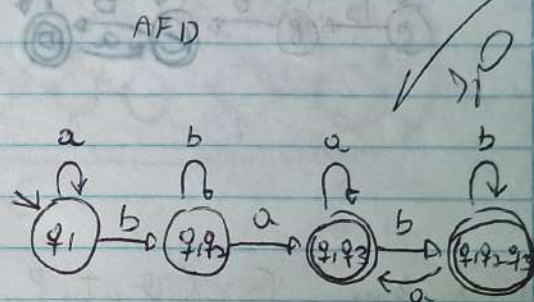 AFD
a b a b
q1 b q1q2 a q1q3 b q1q2q3
a